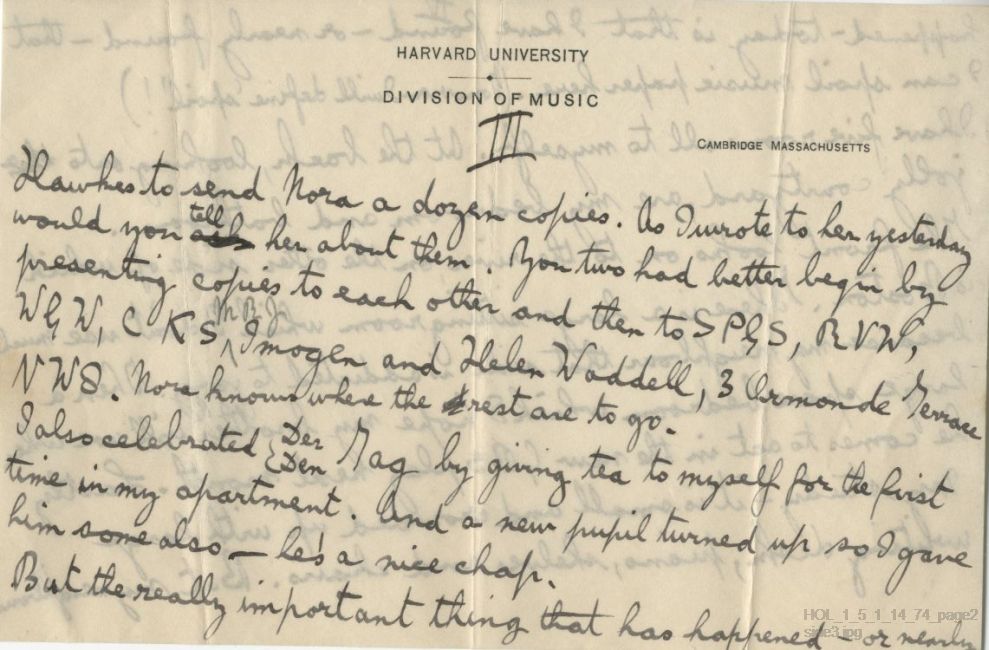 HARVARD UNIVERSITY
DIVISION OF MUSIC
III
CAMBRIDGE MASSACHUSETTS
Hawkes to send Nora a dozen copies. As I wrote to her yesterday
would you tell her about them. You two had better begin by
presenting copies to each other and then to S P G S, R V W,
W G W, C K S, M B J, Imogen and Helen Waddell, 3 Ormonde Terrace
N W 8. Nora knows where the rest are to go.
I also celebrated { Der Den Tag by giving tea to myself for the first
time in my apartment. And a new pupil turned up so I gave
him some also – he's a nice chap.
But the really important thing that has happened – or nearly
HOL_1_5_1_14_74_page2
side3.jpg